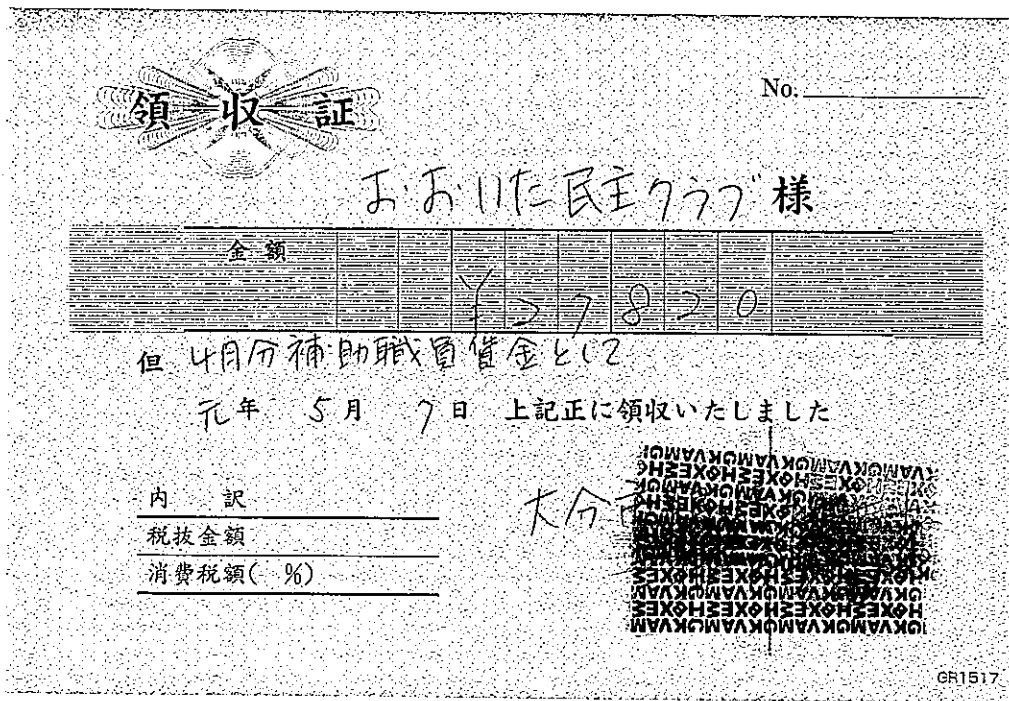 領収証
No.
おおいた民主クラブ様
金額
¥27820
但 4月分補助職員賃金として
元年 5月 7日 上記正に領収いたしました
大分市
内訳
税抜金額
消費税額( %)
GR1517